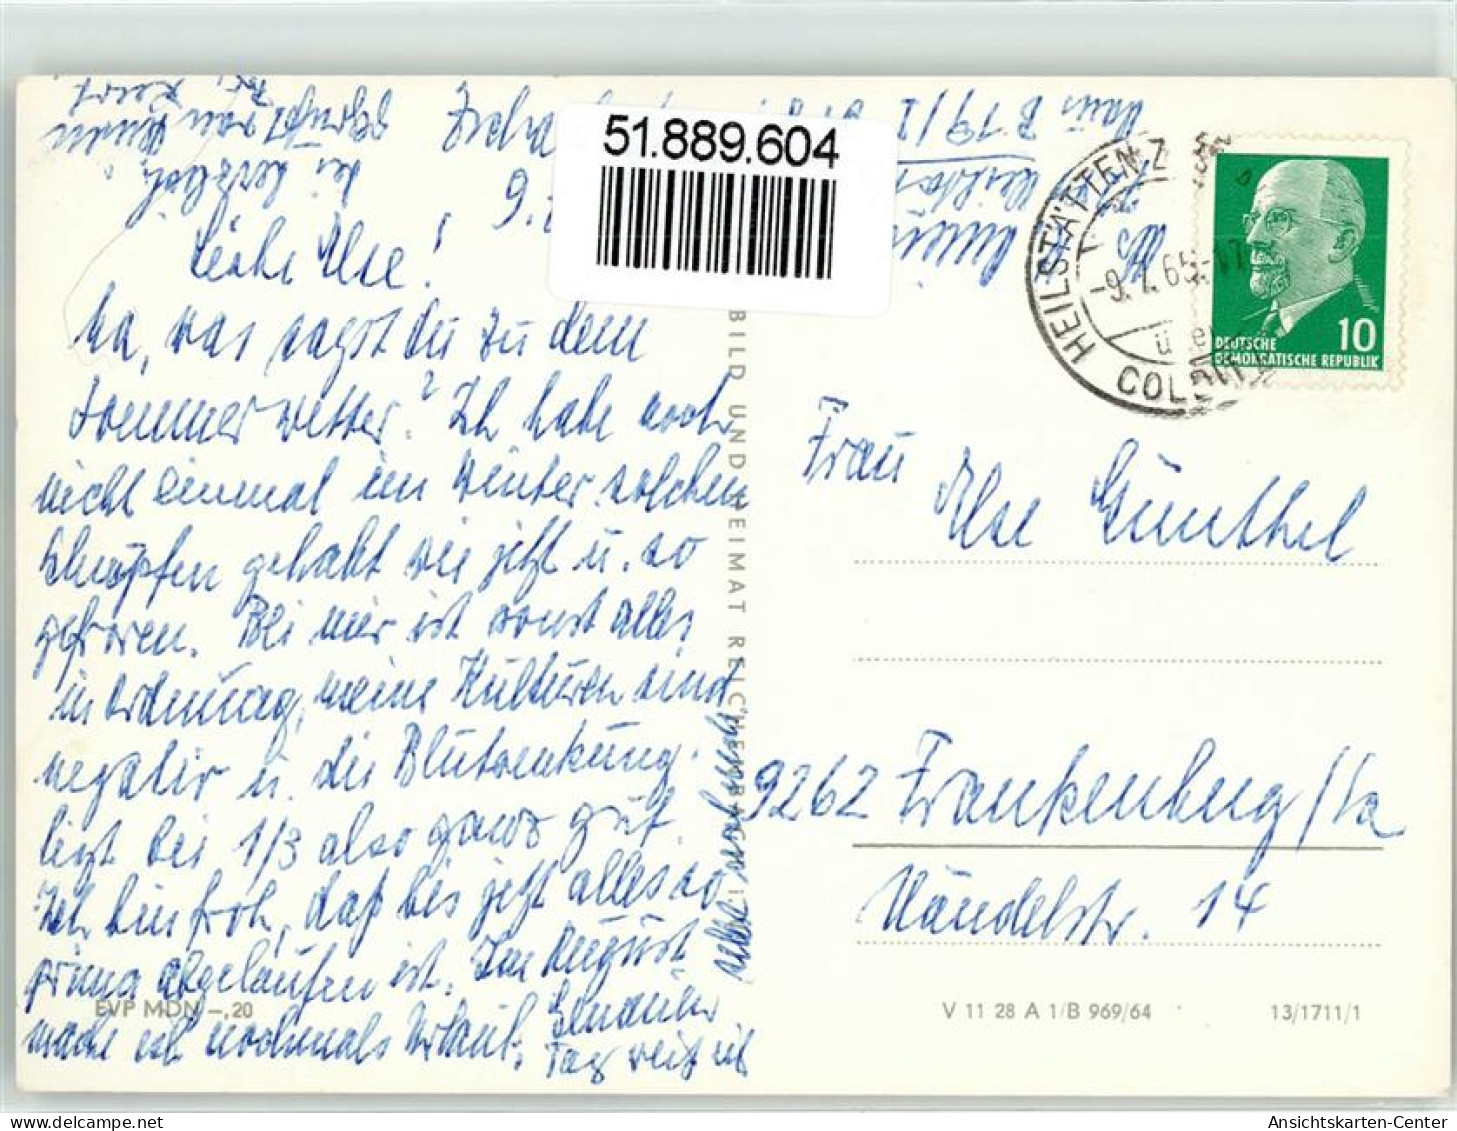 51.889.604
Liebe Ilse!
Na, was sagst du zu dem
Sommerwetter? Ich habe noch
nicht einmal im Winter solchen
Schnupfen gehabt wie jetzt u. so
gefroren. Bei mir ist sonst alles
in Ordnung, meine Kulturen sind
negativ u. die Blutsenkung
liegt bei 1/3 also ganz gut.
Ich bin froh, daß bis jetzt alles so
prima abgelaufen ist. Im August
mache ich nochmals Urlaub.
Genauen
Tag weiß ich
selbst noch
EVP MDN -,20
BILD UND HEIMAT REICHENBACH I.
HEILSTÄTTEN Z
-9.7.65-17
ü
COLDITZ
10
DEUTSCHE
DEMOKRATISCHE REPUBLIK
Frau
Ilse Günthel
9262 Frankenberg/Sa
Händelstr. 14
V 11 28 A 1/B 969/64
13/1711/1
Ansichtskarten-Center